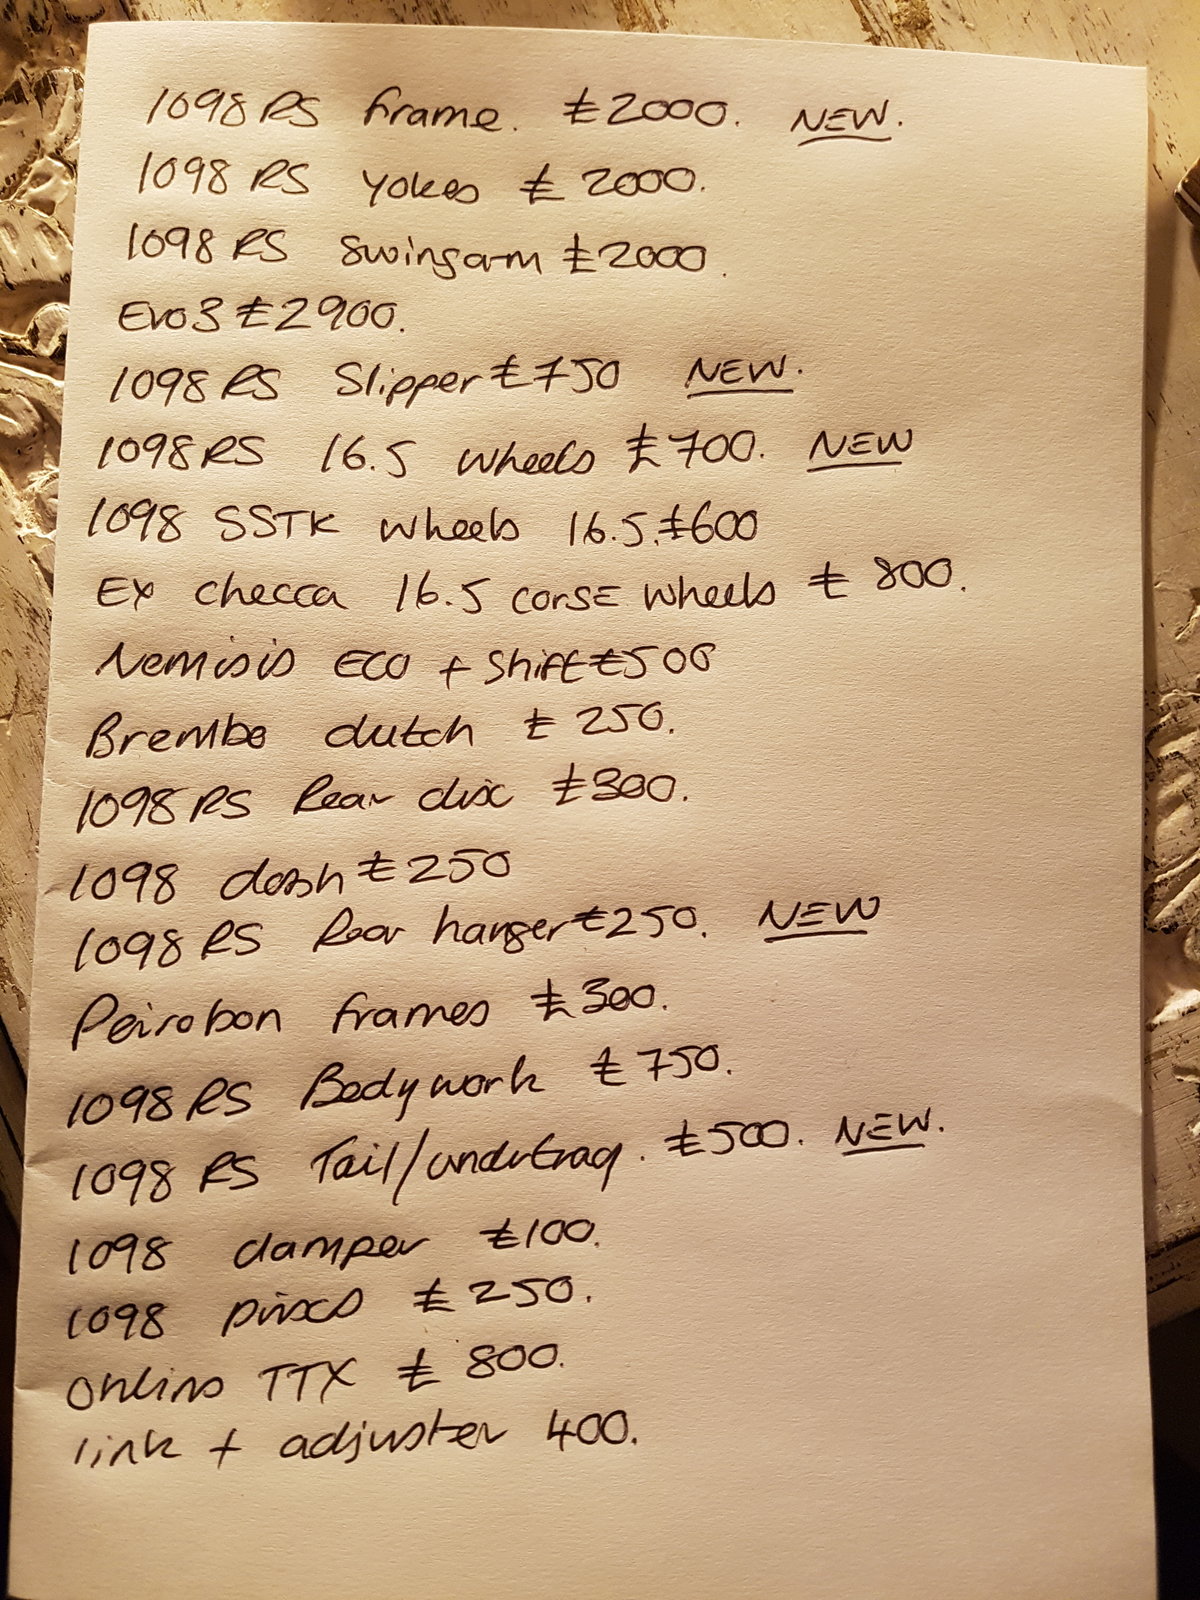 1098 RS frame. £2000. NEW.
1098 RS Yokes £2000.
1098 RS Swingarm £2000.
Evo3 £2900.
1098 RS Slipper £750 NEW.
1098 RS 16.5 wheels £700. NEW
1098 SSTK wheels 16.5. £600
Ex checca 16.5 corsE wheels £800.
Nemisis ECO + Shift £500
Brembo clutch £250.
1098 RS Rear disc £300.
1098 dash £250
1098 RS Rear hanger £250. NEW
Peirobon frames £300.
1098 RS Bodywork £750.
1098 RS Tail/undertray. £500. NEW.
1098 damper £100.
1098 Discs £250.
Ohlins TTX £800.
link + adjuster 400.